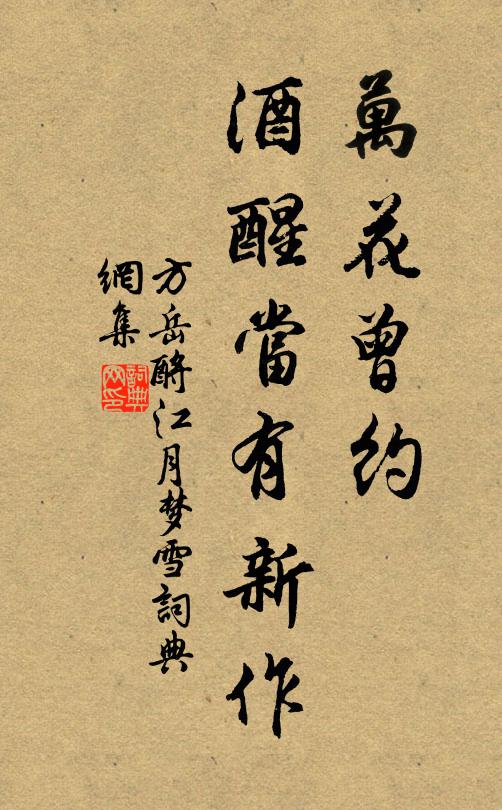 萬花曾約
酒醒當有新作
方岳酹江月梦雪詞典
網集
詞典
网印